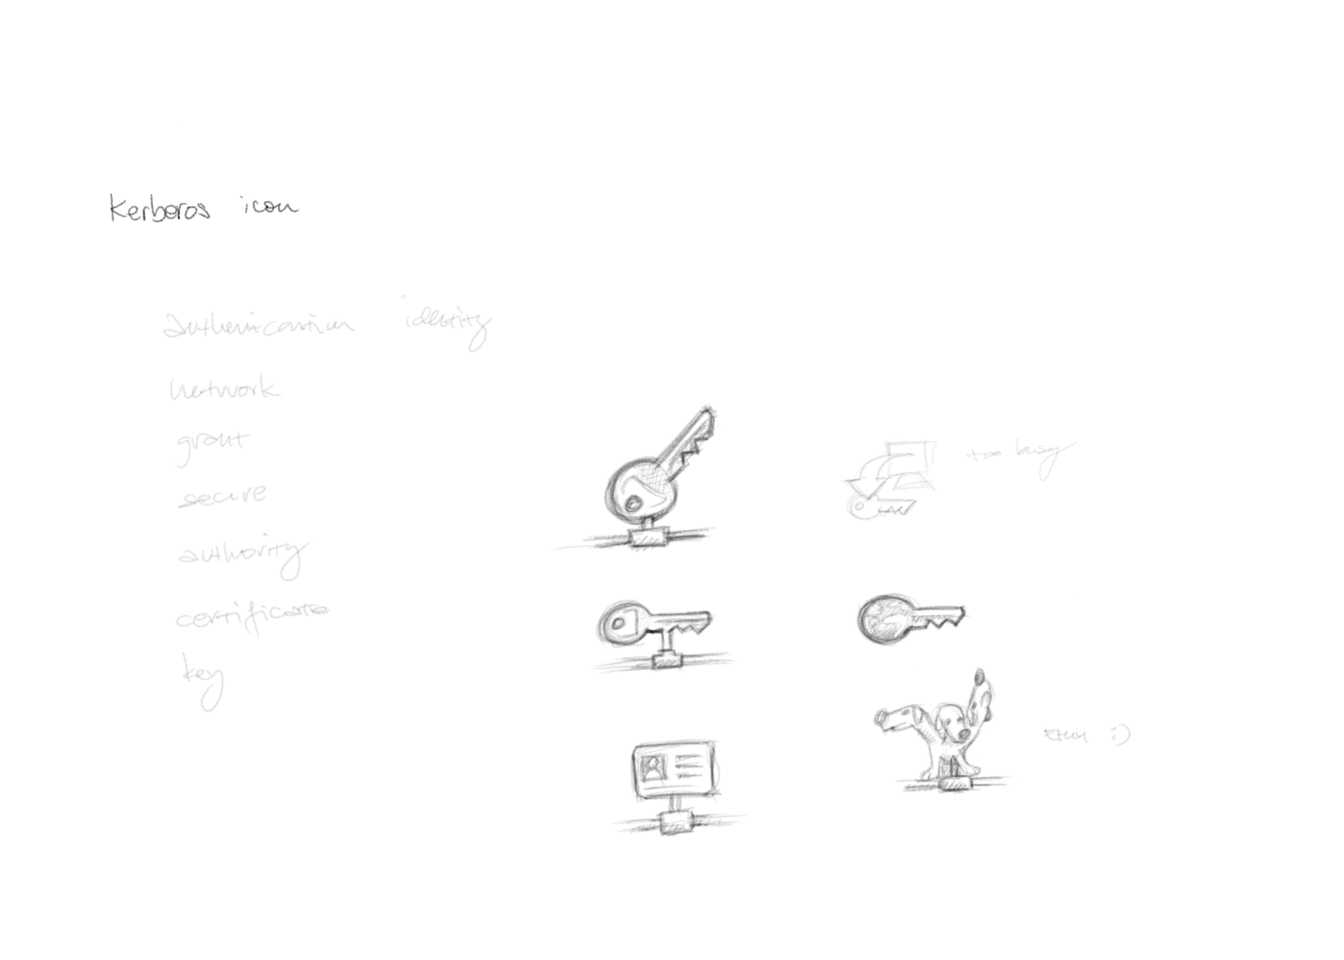 Kerberos icon
authentication identity
network
grant
secure
authority
certificate
key
too busy
:)